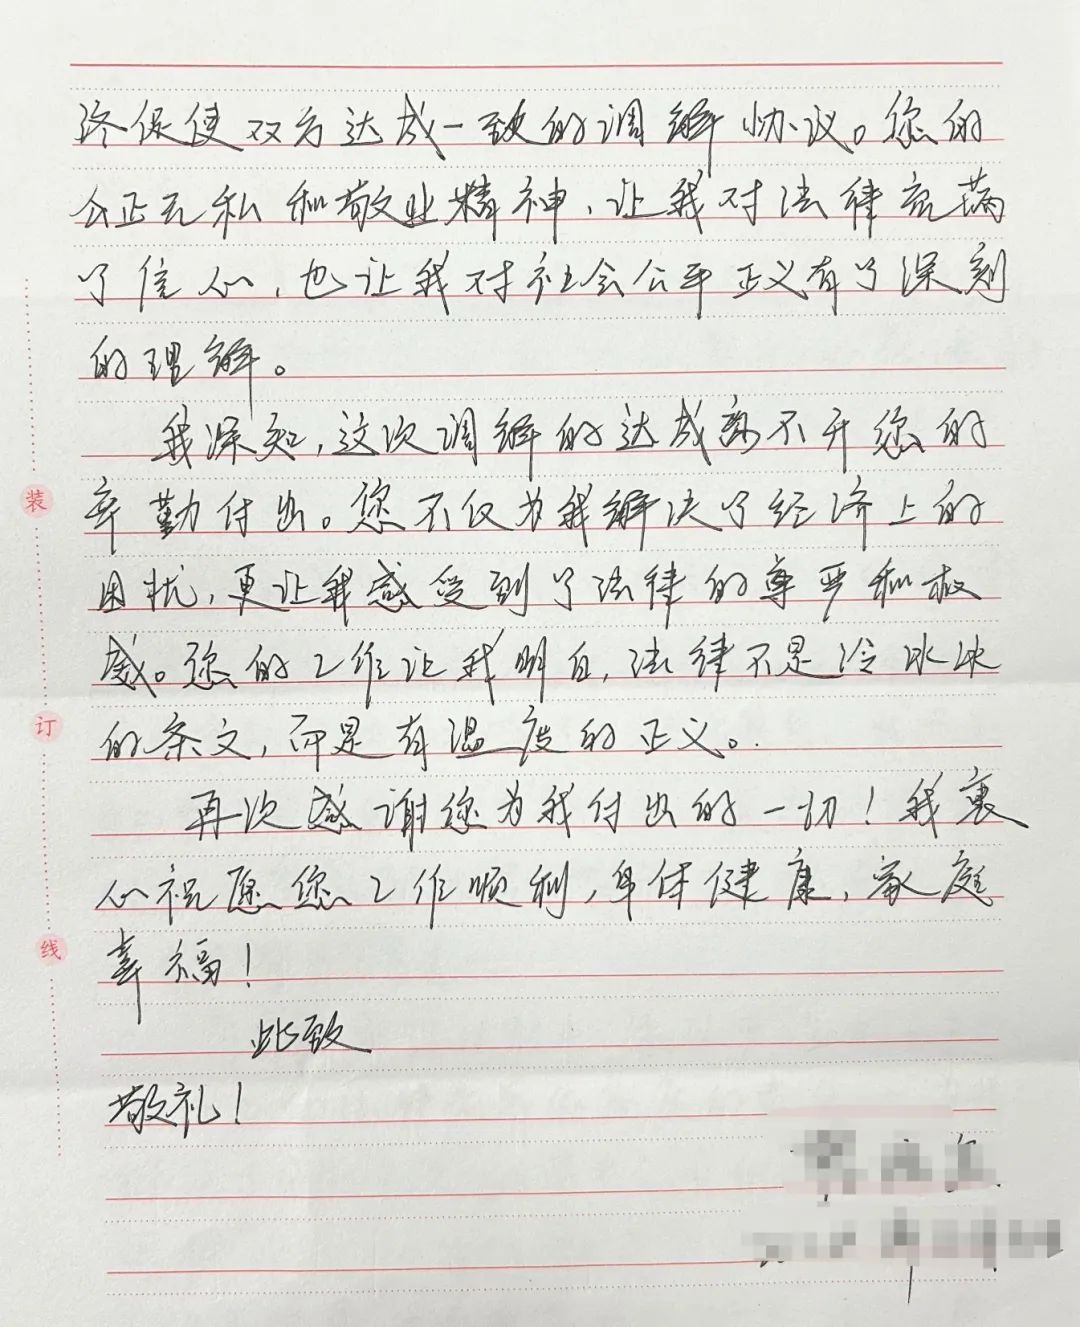 终促使双方达成一致的调解协议。您的
公正无私和敬业精神,让我对法律充满
了信心,也让我对社会公平正义有了深刻
的理解。
我深知,这次调解的达成离不开您的
辛勤付出。您不仅为我解决了经济上的
困扰,更让我感受到了法律的尊严和权
威。您的工作让我明白,法律不是冷冰冰
的条文,而是有温度的正义。
再次感谢您为我付出的一切!我衷
心祝愿您工作顺利,身体健康,家庭
幸福!
此致
敬礼!
装
订
线